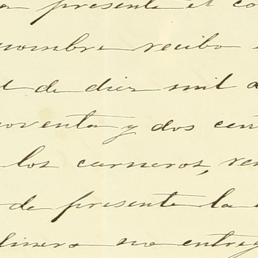 presente el co
nombre recibo
de diez mil
oventa y dos cen
los carneros, ven
de presente la
dinero no entreg